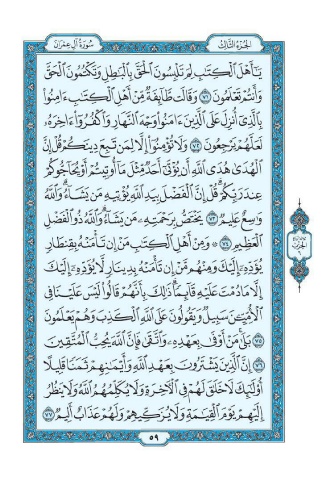 سُورَةُ آلِ عِمْرَان
الجُزْءُ الثَّالِثُ
يَٰٓأَهْلَ ٱلْكِتَٰبِ لِمَ تَلْبِسُونَ ٱلْحَقَّ بِٱلْبَٰطِلِ وَتَكْتُمُونَ ٱلْحَقَّ
وَأَنتُمْ تَعْلَمُونَ ٧١ وَقَالَت طَّآئِفَةٌ مِّنْ أَهْلِ ٱلْكِتَٰبِ ءَامِنُوا۟
بِٱلَّذِىٓ أُنزِلَ عَلَى ٱلَّذِينَ ءَامَنُوا۟ وَجْهَ ٱلنَّهَارِ وَٱكْفُرُوٓا۟ ءَاخِرَهُۥ
لَعَلَّهُمْ يَرْجِعُونَ ٧٢ وَلَا تُؤْمِنُوٓا۟ إِلَّا لِمَن تَبِعَ دِينَكُمْ قُلْ إِنَّ
ٱلْهُدَىٰ هُدَى ٱللَّهِ أَن يُؤْتَىٰٓ أَحَدٌ مِّثْلَ مَآ أُوتِيتُمْ أَوْ يُحَآجُّوكُمْ
عِندَ رَبِّكُمْ ۗ قُلْ إِنَّ ٱلْفَضْلَ بِيَدِ ٱللَّهِ يُؤْتِيهِ مَن يَشَآءُ ۗ وَٱللَّهُ
وَٰسِعٌ عَلِيمٌ ٧٣ يَخْتَصُّ بِرَحْمَتِهِۦ مَن يَشَآءُ ۗ وَٱللَّهُ ذُو ٱلْفَضْلِ
ٱلْعَظِيمِ ٧٤ ۞ وَمِنْ أَهْلِ ٱلْكِتَٰبِ مَنْ إِن تَأْمَنْهُ بِقِنطَارٍ
يُؤَدِّهِۦٓ إِلَيْكَ وَمِنْهُم مَّنْ إِن تَأْمَنْهُ بِدِينَارٍ لَّا يُؤَدِّهِۦٓ إِلَيْكَ
إِلَّا مَا دُمْتَ عَلَيْهِ قَآئِمًا ۗ ذَٰلِكَ بِأَنَّهُمْ قَالُوا۟ لَيْسَ عَلَيْنَا فِى
ٱلْأُمِّيِّـۧنَ سَبِيلٌ وَيَقُولُونَ عَلَى ٱللَّهِ ٱلْكَذِبَ وَهُمْ يَعْلَمُونَ
٧٥ بَلَىٰ مَنْ أَوْفَىٰ بِعَهْدِهِۦ وَٱتَّقَىٰ فَإِنَّ ٱللَّهَ يُحِبُّ ٱلْمُتَّقِينَ
٧٦ إِنَّ ٱلَّذِينَ يَشْتَرُونَ بِعَهْدِ ٱللَّهِ وَأَيْمَٰنِهِمْ ثَمَنًا قَلِيلًا
أُو۟لَٰٓئِكَ لَا خَلَٰقَ لَهُمْ فِى ٱلْءَاخِرَةِ وَلَا يُكَلِّمُهُمُ ٱللَّهُ وَلَا يَنظُرُ
إِلَيْهِمْ يَوْمَ ٱلْقِيَٰمَةِ وَلَا يُزَكِّيهِمْ وَلَهُمْ عَذَابٌ أَلِيمٌ ٧٧
٥٩